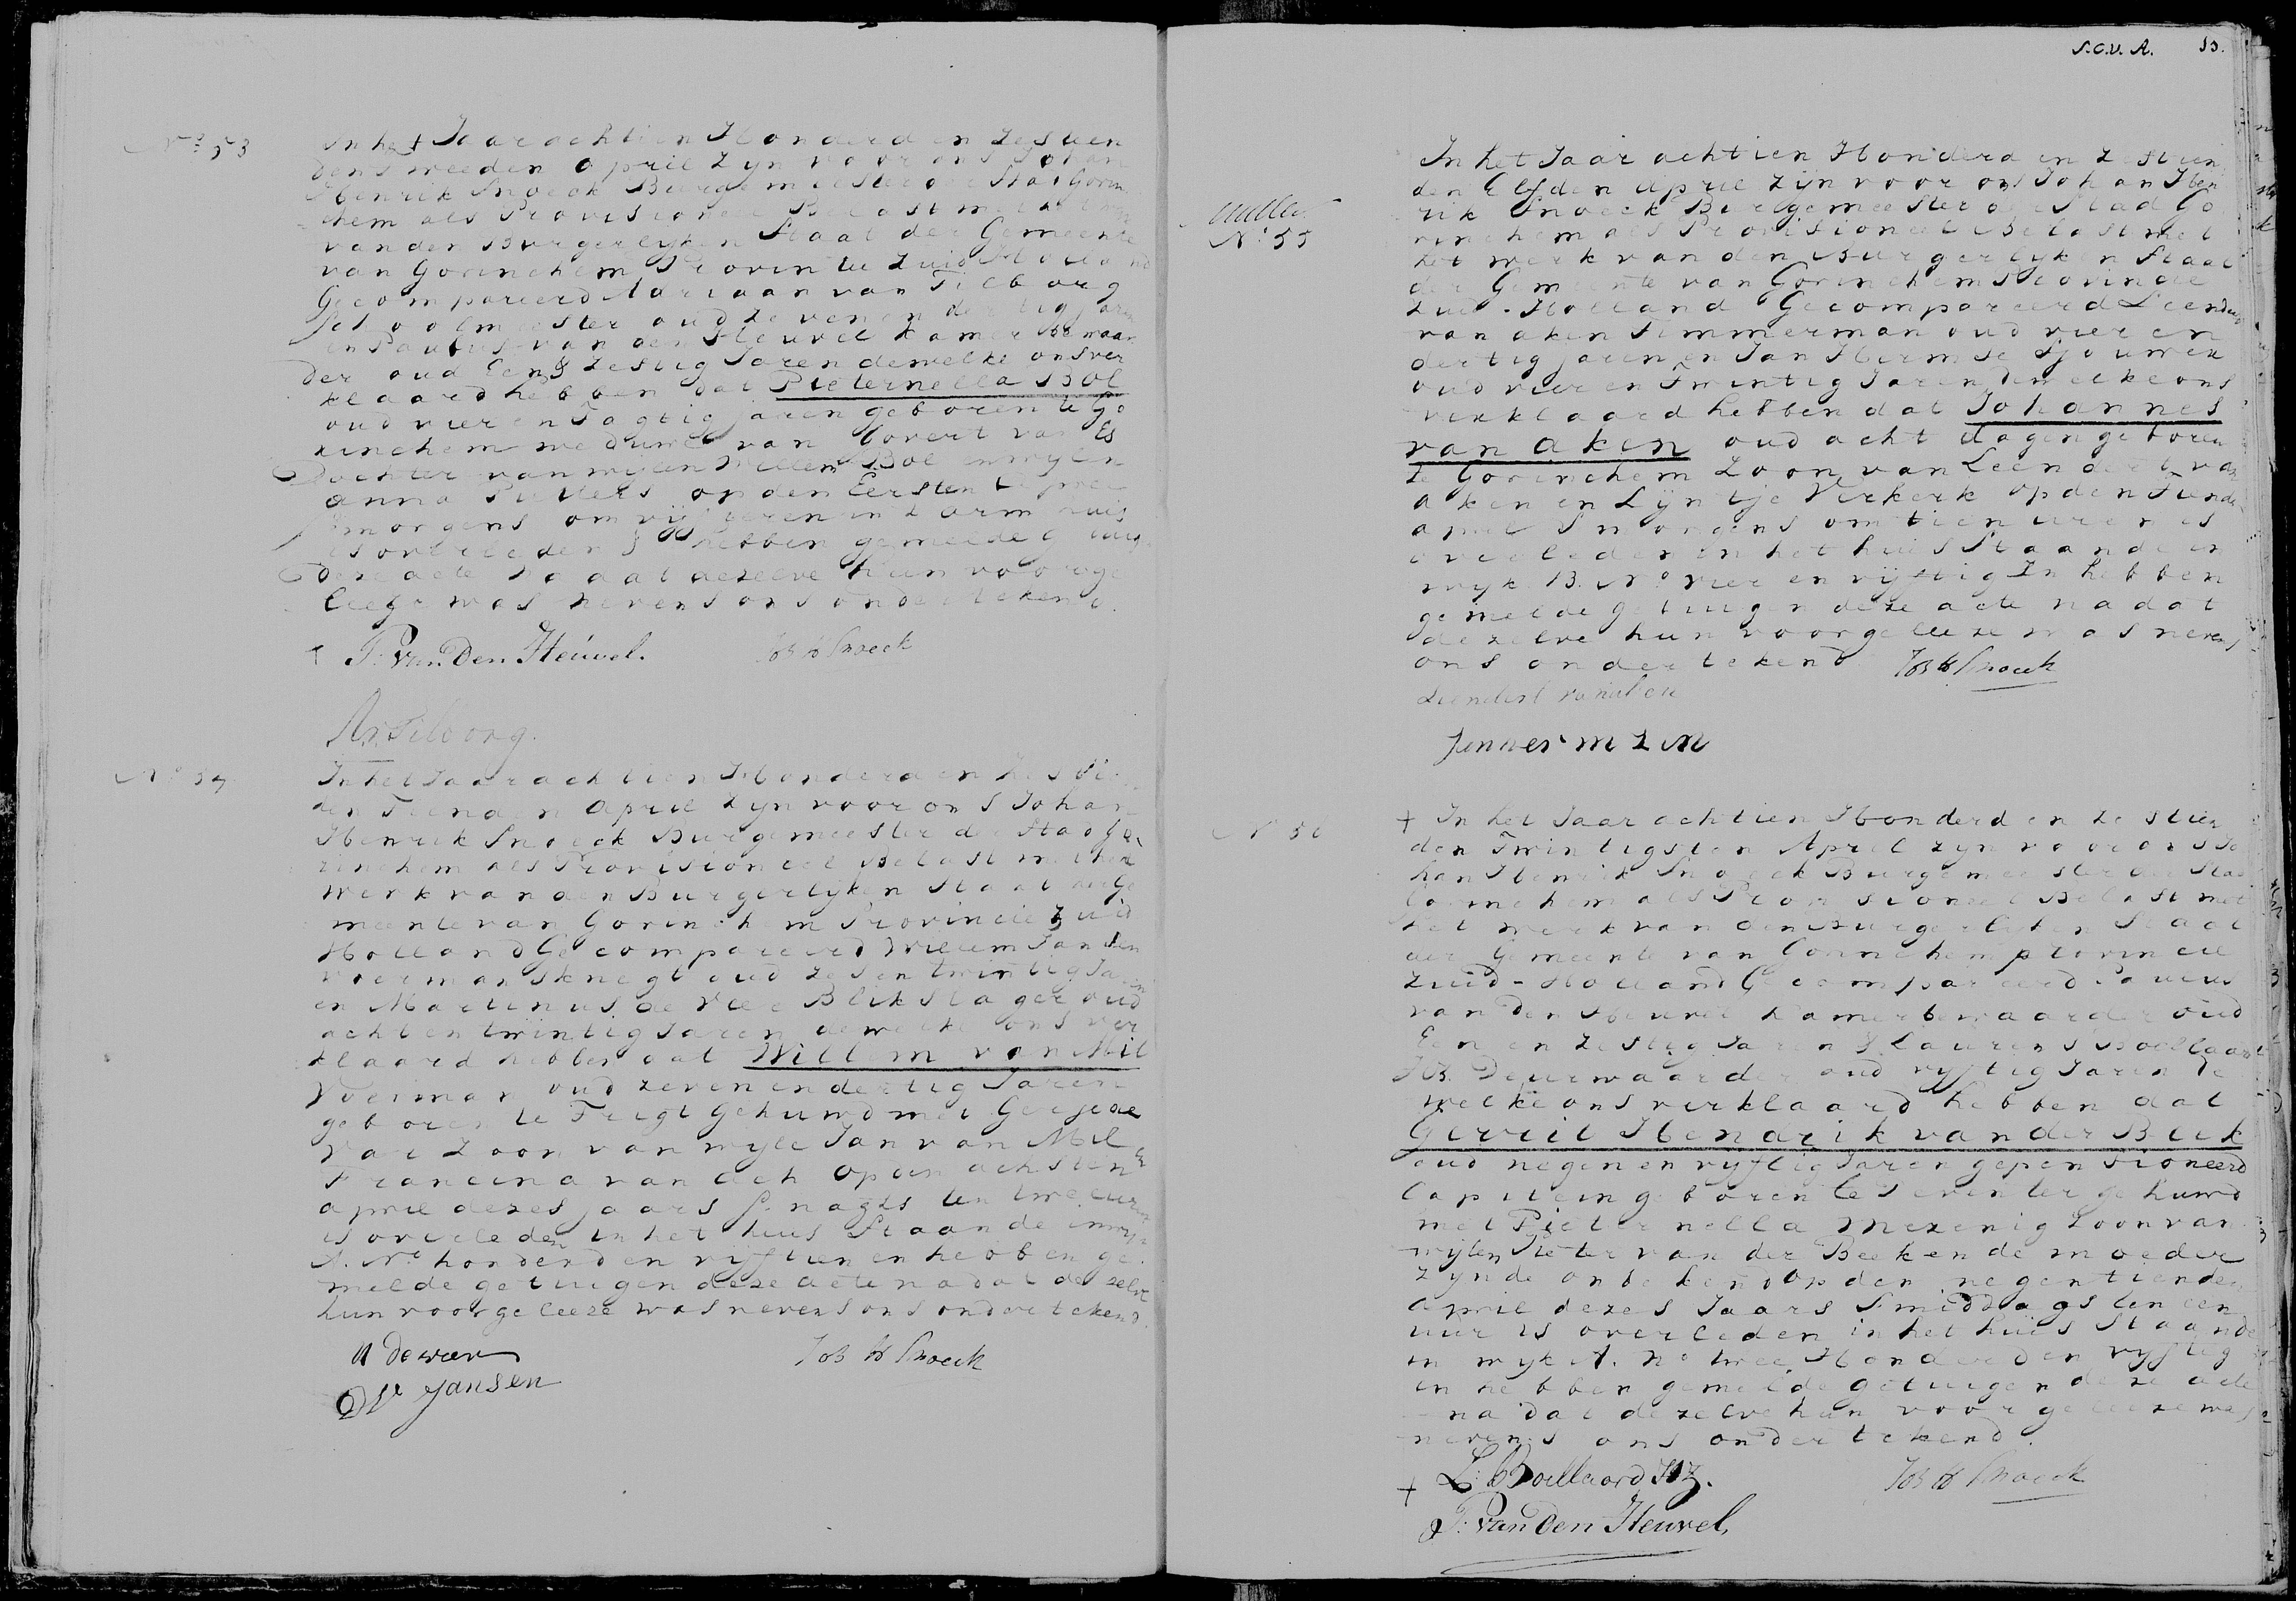 N° 53
In het Jaar achtien Honderd en Zestien
den tweeden April zyn voor ons Johan
Henrik Snoeck Burgemeester der Stad Gorin
chem als Provisioneel Belast met het
van den Burgerlyken Staat der Gemeente
van Gorinchem Provintie Zuid Holland
Gecompareerd Adriaan van Tilborg
Schoolmeester oud Zeven en dertig jaren
en Paulus van den Heuvel Kamer Bewaar
der oud Een & Zestig Jaren dewelke ons ver
klaard hebben dat Pieternella Bol
oud vier en Tagtig jaren geboren te Go
rinchem weduwe van Govert van Es
Dochter van wylen Willem Bol en wylen
Anna Pieters op den Eersten April
smorgens om vijf uren in t arm huis
is overleden & hebben gemelde getuigen
deze acte na dat dezelve hun voorge
leeze was nevens ons ondertekend.
P: van Den Heuvel. Joh H Snoeck
A v Tilborg.
N° 54
In het Jaar achtien Honderd en Zestien
den Tienden April zyn voor ons Johan
Henrik Snoeck Burgemeester der Stad Go
rinchem als Provisioneel Belast met het
werk van den Burgerlyken Staat der Ge
meente van Gorinchem Provincie Zuid
Holland Gecompareerd Willem Jansen
voermansknegt oud zes en twintig Jaren
en Martinus de Blikslager oud
acht en twintig Jaren dewelke ons ver
klaard hebben dat Willem van Mil
Voerman oud zeven en dertig Jaren
geboren te Trigt Gehuwd met
Zoon van wyle Jan van Mil &
Francina van op den achsten
april dezes jaars s nagts ten twee uuren
is overleden in het huis Staande in wyk
A. N° honderd en vyftien en hebben ge
melde getuigen deze acte na dat dezelve
hun voorgeleeze was nevens ons ondertekend.
Joh H Snoeck
W Jansen
S.C.V.A. 53.
N° 55
In het Jaar achtien Honderd en Zestien
den Elfden April zijn voor ons Johan Hen
rik Snoeck Burgemeester der Stad Go
rinchem als Provisioneel Belast met
het werk van den Burgerlyken Staat
der Gemeente van Gorinchem Provincie
Zuid-Holland Gecompareerd Leendert
van aken Timmerman oud vier en
dertig jaren en Jan Hermse Sjouwer
oud vier en Twintig Jaren Dewelke ons
verklaard hebben dat Johannes
van aken oud acht dagen geboren
te Gorinchem Zoon van Leendert van
aken en Lijntje Verkerk op den Tiende
april Smorgens om tien uren is
overleden in het huis Staande in
wyk B. N° vier en vijftig En hebben
gemelde getuigen deze acte na dat
dezelve hun voorgeleeze was nevens
ons ondertekend Joh H Snoeck
Leendert van aken
+ In het Jaar achtien Honderd en Zestien
den Twintigsten April zyn voor ons Jo
han Henrik Snoeck Burgemeester der Stad
Gorinchem als Provisioneel Belast met
het werk van den Burgerlyken Staat
der Gemeente van Gorinchem provincie
Zuid-Holland Gecompareerd Paulus
van den Heuvel Kamerbewaarder oud
Een en Zestig Jaren & Laurens Boellaard
HZ. Deurwaarder oud vyftig Jaren De
welke ons verklaard hebben dat
Gerrit Hendrik van der Beek
oud negen en vyftig Jaren gepensioneerd
Capitein geboren te Deventer gehuwd
met Pieternella Mezenig Zoon van
wylen Pieter van der Beek en de moeder
zynde onbekend op den negentienden
April dezes Jaars Smiddags ten een
uur is overleden in het huis Staande
in wyk A. N° twee Honderd en vyftig
en hebben gemelde getuigen deze acte
na dat dezelve hun voorgeleeze was
nevens ons ondertekend.
+ L: Boellaard HZ. Joh H Snoeck
P: van Den Heuvel,